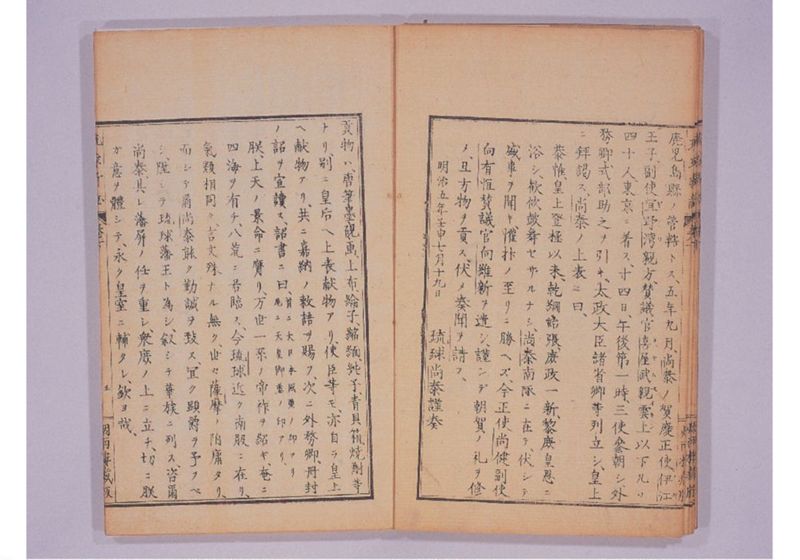 鹿児島縣ノ管轄トス、五年九月、尚泰ノ賀慶正使伊江
王子、副使宜野湾親方、賛議官喜屋武親雲上以下凡ソ
四十人東京ニ着ス、十四日午後第一時三使參朝シ外
務卿式部助之ヲ引キ、太政大臣諸省卿等列立シ、皇上
ニ拜謁ス、尚泰ノ上表ニ曰、
恭惟皇上登極以来、乾綱始張庶政一新、黎庶皇恩ニ
浴シ、歓欣鼓舞セザルナシ、尚泰南陬ニ在テ伏シテ
盛事ヲ聞キ懽抃ノ至リニ勝ヘズ、今正使尚健副使
向有恒賛議官向維新ヲ遣シ、謹ンデ朝賀ノ礼ヲ修
メ、且方物ヲ貢ス、伏メ奏聞ヲ請フ、
明治五年壬申七月十九日
琉球尚泰謹奏
貢物ハ、唐筆墨硯画、上布綸子、縮緬純子青貝箱焼酎等
ナリ、別ニ皇后ヘ上表献物アリ、使臣等モ、亦自ラ皇上
ヘ献物アリ、共ニ嘉納ノ敕語ヲ賜フ、次ニ外務卿冊封
ノ詔ヲ宣讀ス、詔書ニ曰、
朕上天ノ景命ニ膺リ、万世一系ノ帝祚ヲ紹キ、奄ニ
四海ヲ有チ、八荒ニ君臨ス、今琉球近ク南服ニ在リ、
氣類相同ク、言文殊ナル無ク、世々薩摩ノ附庸タリ、
而シテ爾尚泰能ク勤誠ヲ致ス、宜ク顕爵ヲ予フベ
シ、陞シテ琉球藩王ト為シ、叙シテ華族ニ列ス、咨爾
尚泰其レ藩屏ノ任ヲ重シ、衆庶ノ上ニ立チ、切ニ朕
カ意ヲ體シテ、永ク皇室ニ輔タレ、欽ヨ哉、